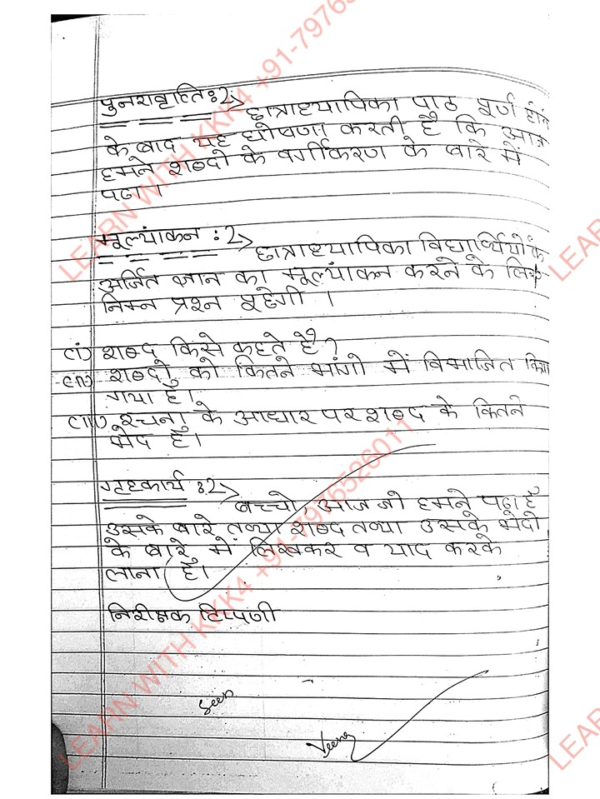 पुनरावृत्ति :-> छात्राध्यापिका पाठ पूर्ण होने
के बाद यह घोषणा करती है कि आज
हमने शब्दो के वर्गीकरण के बारे में
पढा।
मूल्यांकन :-> छात्राध्यापिका विद्यार्थियों के
अर्जित ज्ञान का मूल्यांकन करने के लिए
निम्न प्रश्न पूछेगी ।
(i) शब्द किसे कहते है?
(ii) शब्दो को कितने भागो में विभाजित किया
गया है।
(iii) रचना के आधार पर शब्द के कितने
भेद है।
गृहकार्य :-> बच्चो, आज जो हमने पढा है
उसके बारे तथा शब्द तथा उसके भेदो
के बारे में लिखकर व याद करके
लाना है।
निरीक्षक टिप्पणी
Seen
LEARN WITH KKK4 +91-7976526011